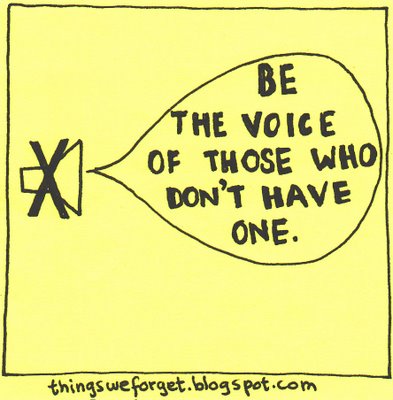 BE
THE VOICE
OF THOSE WHO
DON'T HAVE
ONE.
thingsweforget.blogspot.com